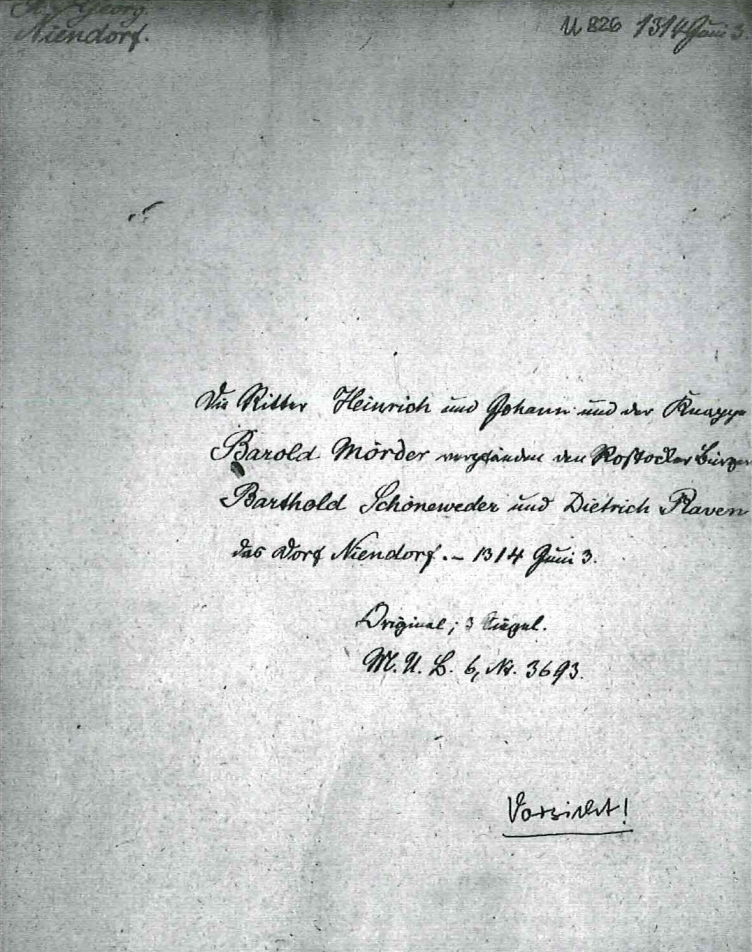 St. Georg.
Niendorf.
U 826 1314 Juni 3.
Die Ritter Heinrich und Johann und der Knappe
Barold Mörder verpfänden den Rostocker Bürgern
Barthold Schöneweder und Dietrich Raven
das Dorf Niendorf. – 1314 Juni 3.
Original; 3 Siegel.
M. U. B. 6, Nr. 3693.
Vorsicht!